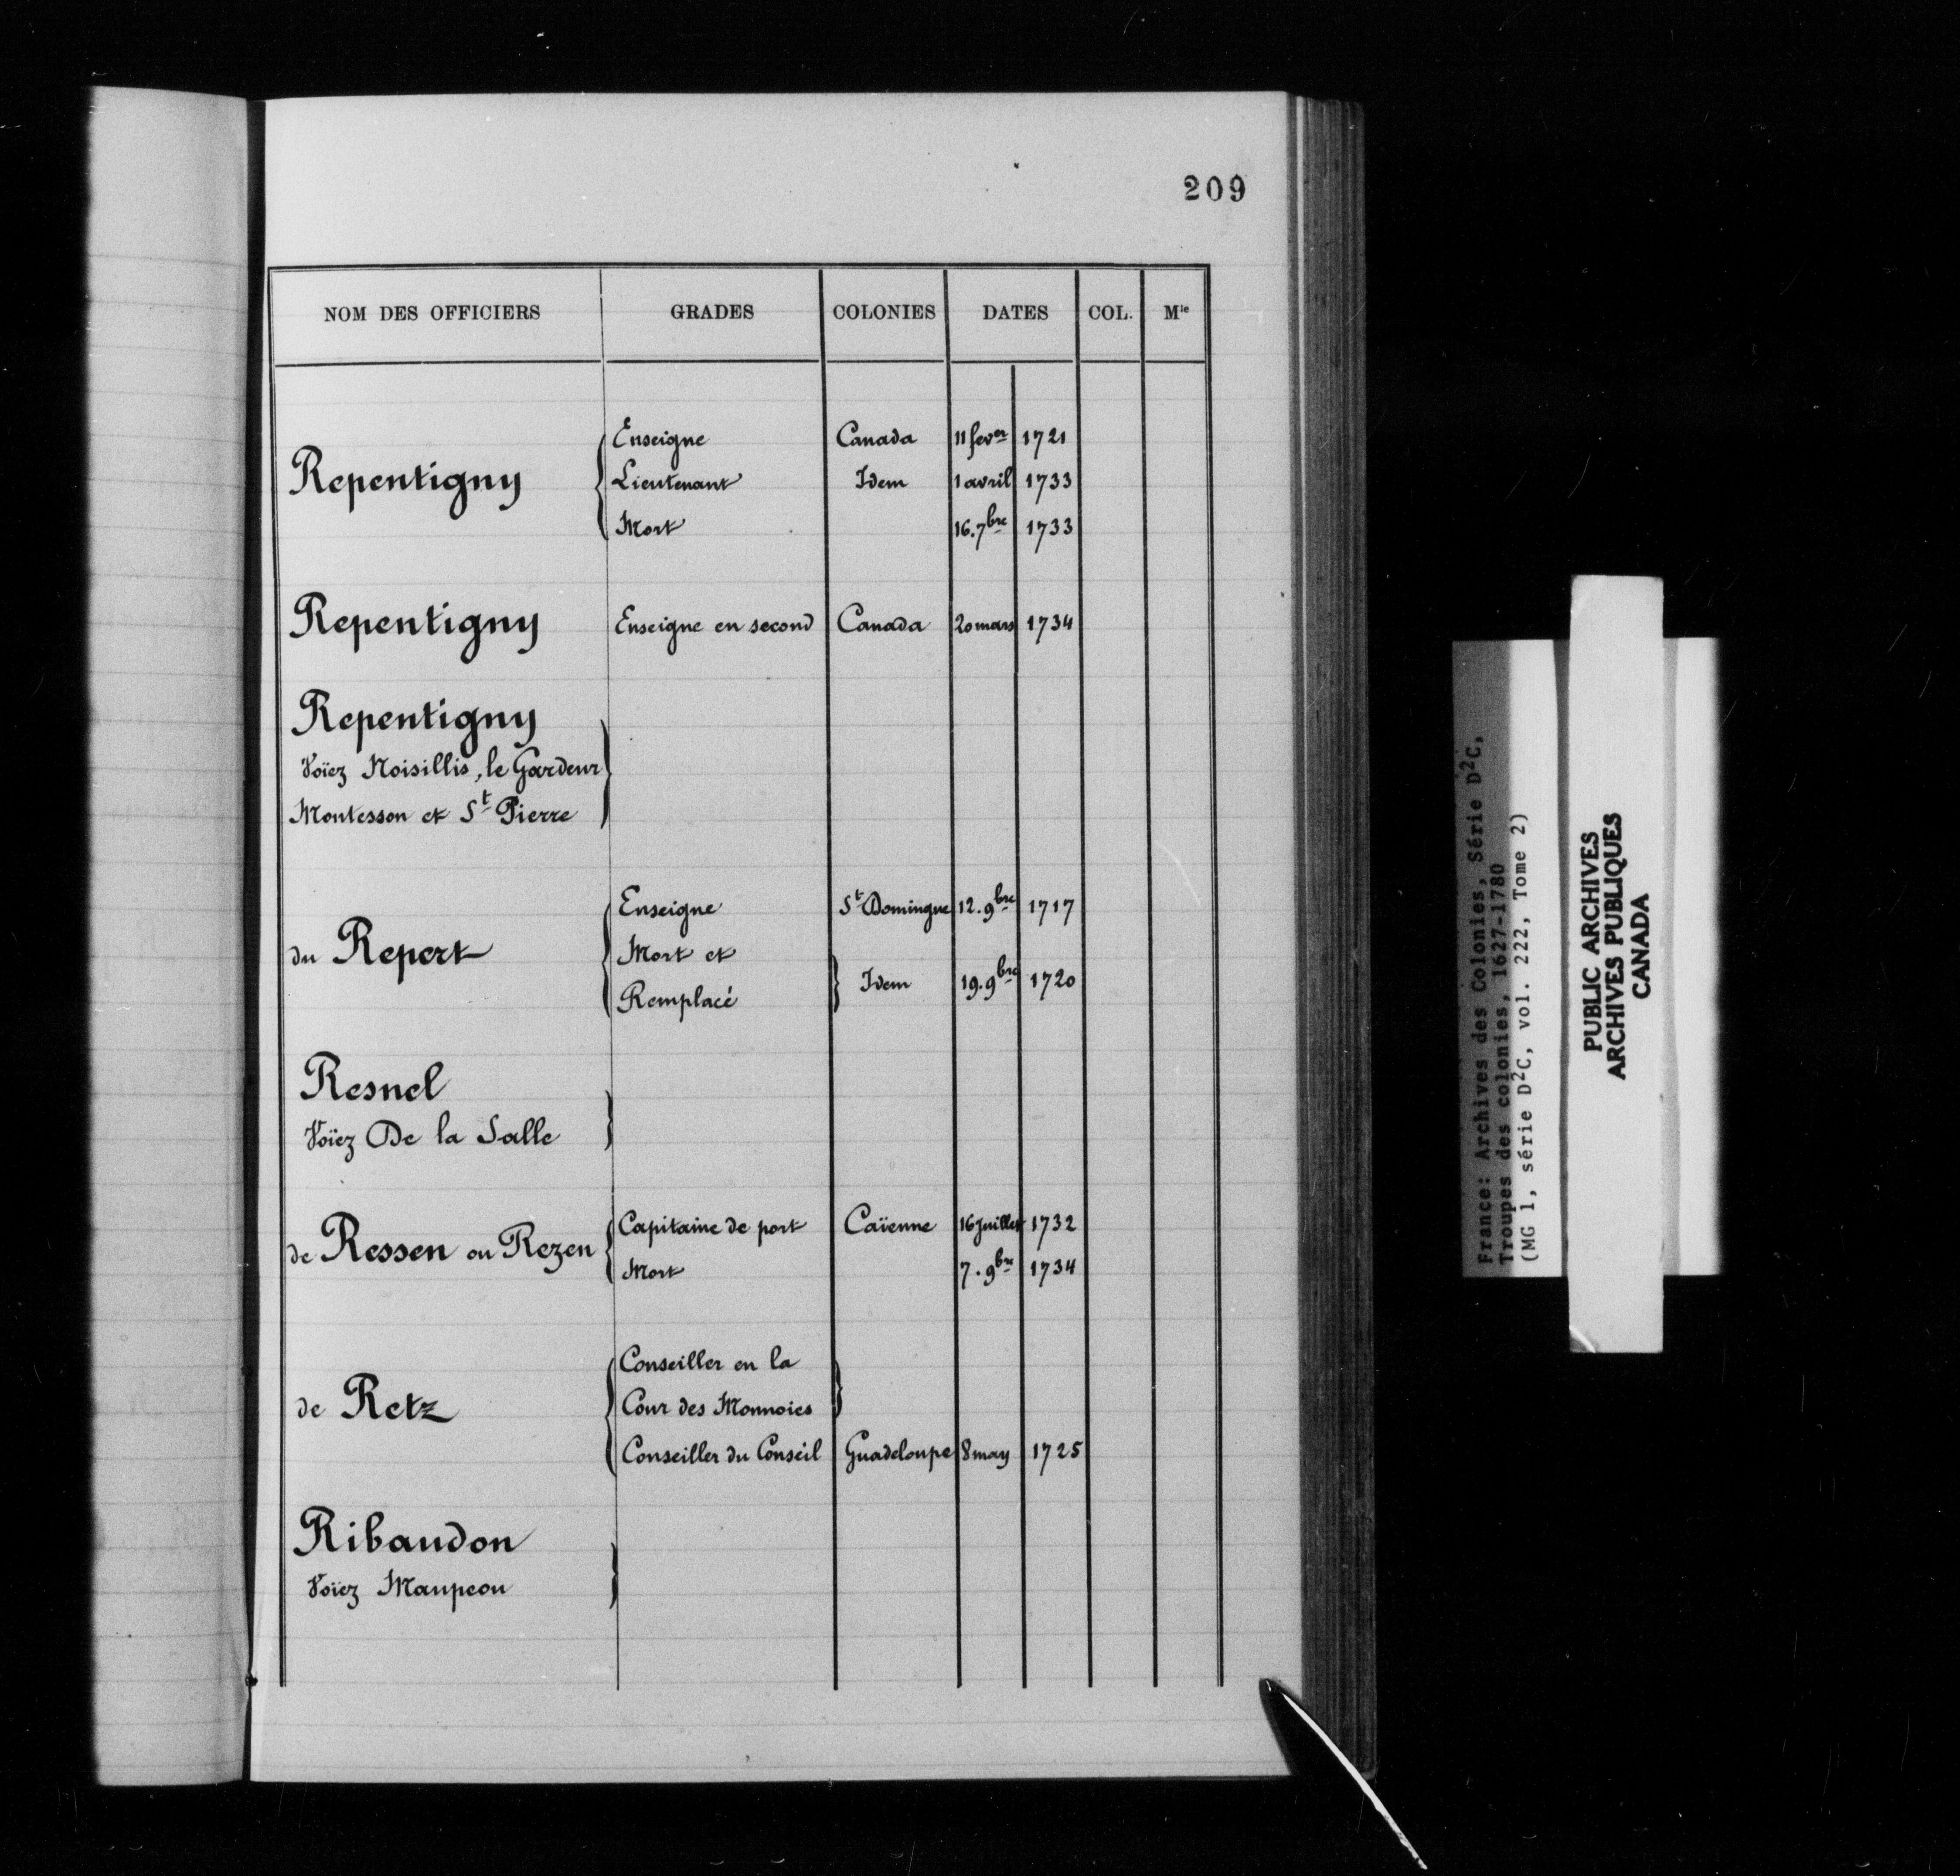 209
NOM DES OFFICIERS GRADES COLONIES DATES COL. Mle
Enseigne Canada 11 fever 1721
Repentigny Lieutenant Idem 1 avril 1733
Mort 16.7bre 1733
Repentigny Enseigne en second Canada 20 mars 1734
Repentigny
Voïez Noisillis, le Gardeur
Montesson et St Pierre
Enseigne St Domingue 12.9bre 1717
du Repert Mort et
Remplacé Idem 19.9bre 1720
Resnel
Voïez De la Salle
Capitaine de port Caïenne 16 Juillet 1732
de Ressen ou Rezen
Mort 7.9bre 1734
Conseiller en la
de Retz Cour des Monnoies
Conseiller du Conseil Guadeloupe 8 may 1725
Ribaudon
Voïez Maupeou
France: Archives des Colonies, Série D2C,
Troupes des colonies, 1627-1780
(MG 1, série D2C, vol. 222, Tome 2)
PUBLIC ARCHIVES
ARCHIVES PUBLIQUES
CANADA